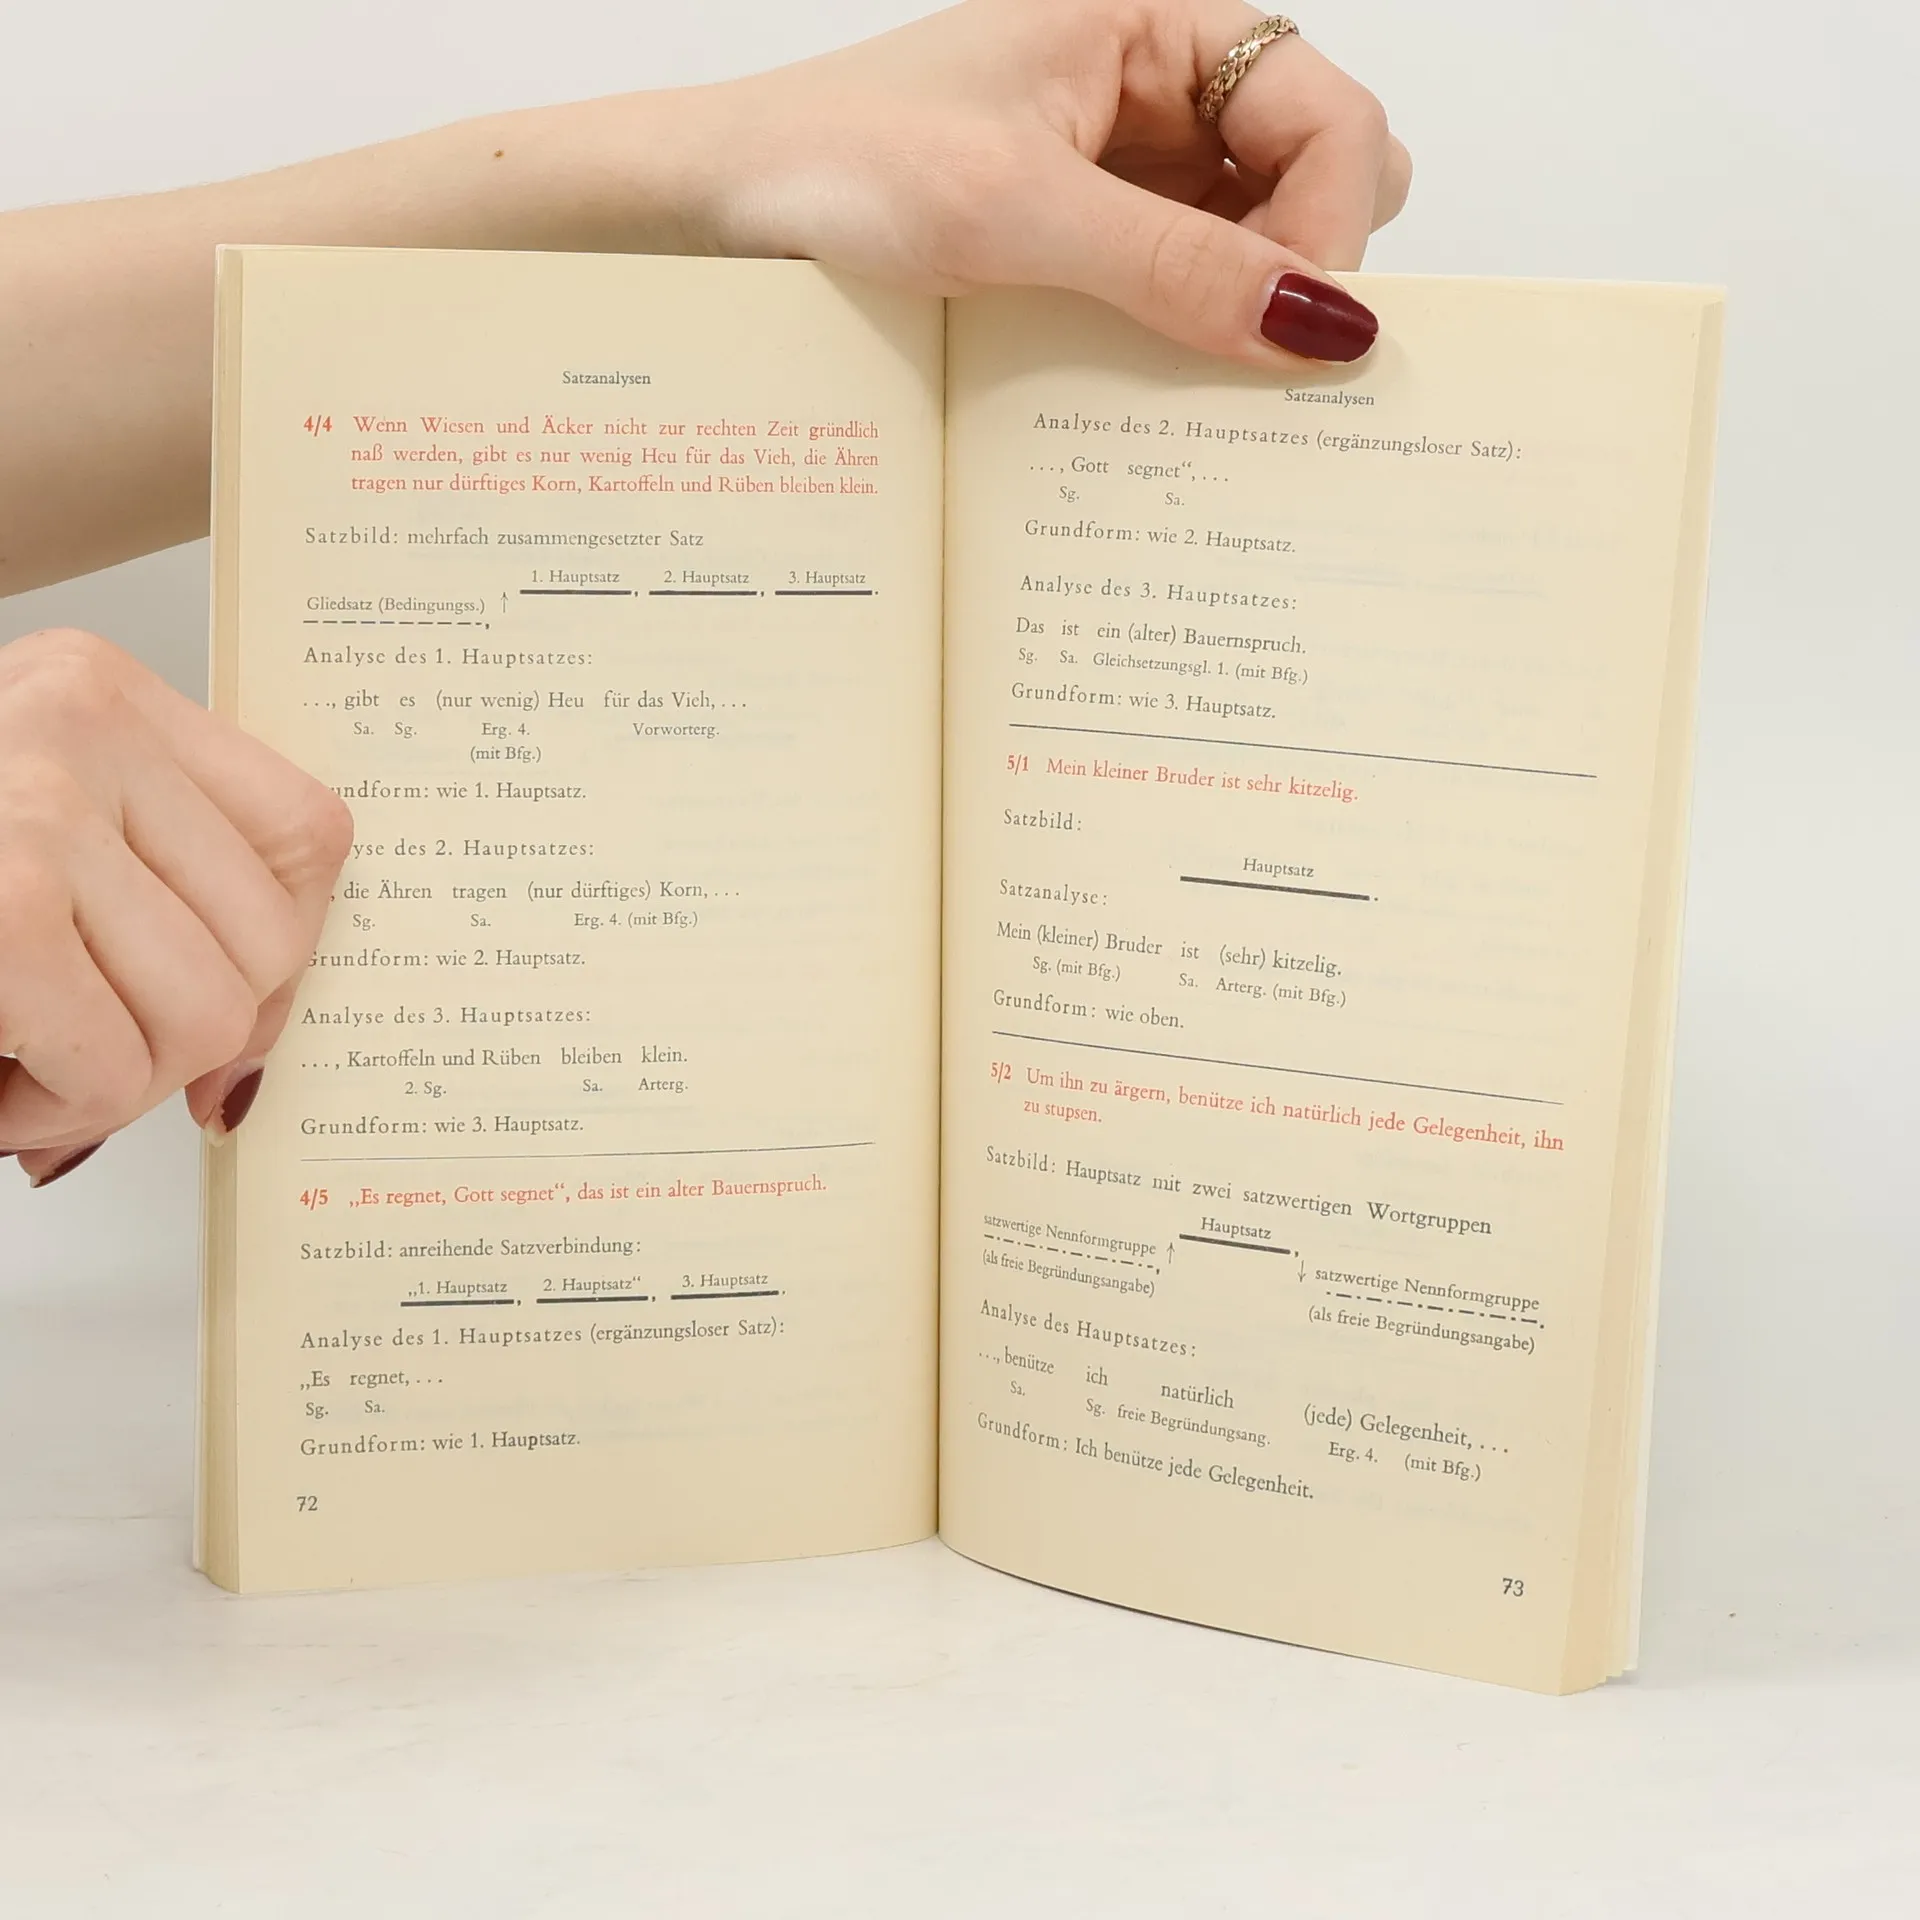 Satzanalysen
4/4 Wenn Wiesen und Äcker nicht zur rechten Zeit gründlich
naß werden, gibt es nur wenig Heu für das Vieh, die Ähren
tragen nur dürftiges Korn, Kartoffeln und Rüben bleiben klein.
Satzbild: mehrfach zusammengesetzter Satz
1. Hauptsatz, 2. Hauptsatz, 3. Hauptsatz.
Gliedsatz (Bedingungss.) ↑
Analyse des 1. Hauptsatzes:
..., gibt es (nur wenig) Heu für das Vieh, ...
Sa. Sg. Erg. 4. Vorworterg.
(mit Bfg.)
undform: wie 1. Hauptsatz.
yse des 2. Hauptsatzes:
, die Ähren tragen (nur dürftiges) Korn, ...
Sg. Sa. Erg. 4. (mit Bfg.)
Grundform: wie 2. Hauptsatz.
Analyse des 3. Hauptsatzes:
..., Kartoffeln und Rüben bleiben klein.
2. Sg. Sa. Arterg.
Grundform: wie 3. Hauptsatz.
4/5 „Es regnet, Gott segnet“, das ist ein alter Bauernspruch.
Satzbild: anreihende Satzverbindung:
„1. Hauptsatz, 2. Hauptsatz“, 3. Hauptsatz.
Analyse des 1. Hauptsatzes (ergänzungsloser Satz):
„Es regnet, ...
Sg. Sa.
Grundform: wie 1. Hauptsatz.
72
Satzanalysen
Analyse des 2. Hauptsatzes (ergänzungsloser Satz):
..., Gott segnet“, ...
Sg. Sa.
Grundform: wie 2. Hauptsatz.
Analyse des 3. Hauptsatzes:
Das ist ein (alter) Bauernspruch.
Sg. Sa. Gleichsetzungsgl. 1. (mit Bfg.)
Grundform: wie 3. Hauptsatz.
5/1 Mein kleiner Bruder ist sehr kitzelig.
Satzbild:
Hauptsatz.
Satzanalyse:
Mein (kleiner) Bruder ist (sehr) kitzelig.
Sg. (mit Bfg.) Sa. Arterg. (mit Bfg.)
Grundform: wie oben.
5/2 Um ihn zu ärgern, benütze ich natürlich jede Gelegenheit, ihn
zu stupsen.
Satzbild: Hauptsatz mit zwei satzwertigen Wortgruppen
Hauptsatz,
satzwertige Nennformgruppe, ↑
(als freie Begründungsangabe)
↓ satzwertige Nennformgruppe.
(als freie Begründungsangabe)
Analyse des Hauptsatzes:
..., benütze ich natürlich (jede) Gelegenheit, ...
Sa. Sg. freie Begründungsang. Erg. 4. (mit Bfg.)
Grundform: Ich benütze jede Gelegenheit.
73